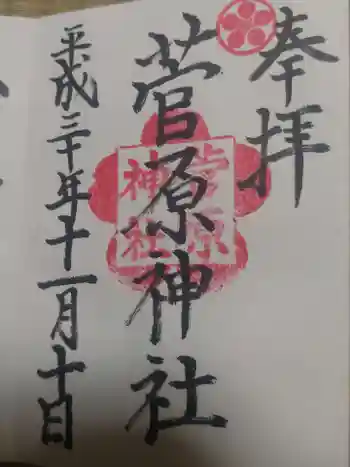 奉拝
菅原神社
菅原
神社
平成三十年十一月十日